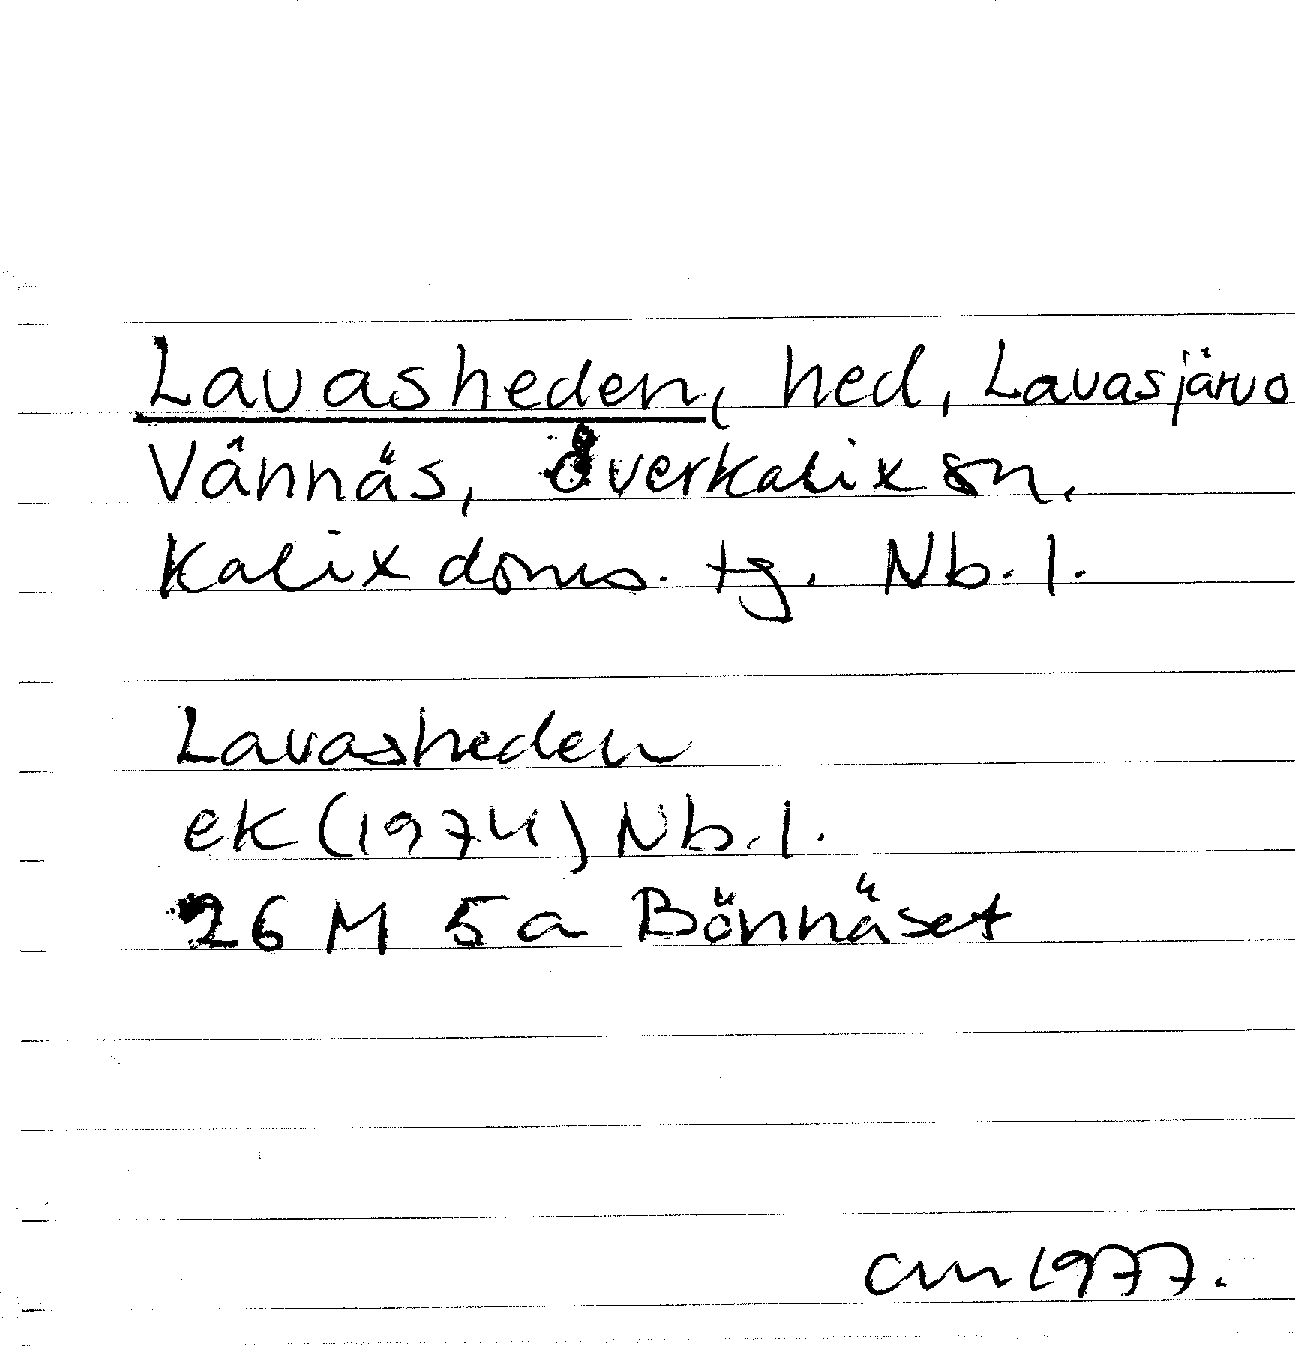 Lavasheden, hed, Lavasjärvo
Vännäs, Överkalix sn,
Kalix doms. tg. Nb. l.
Lavasheden
ek (1974) Nb. l.
26 M 5a Bönnäset
cm 1977.